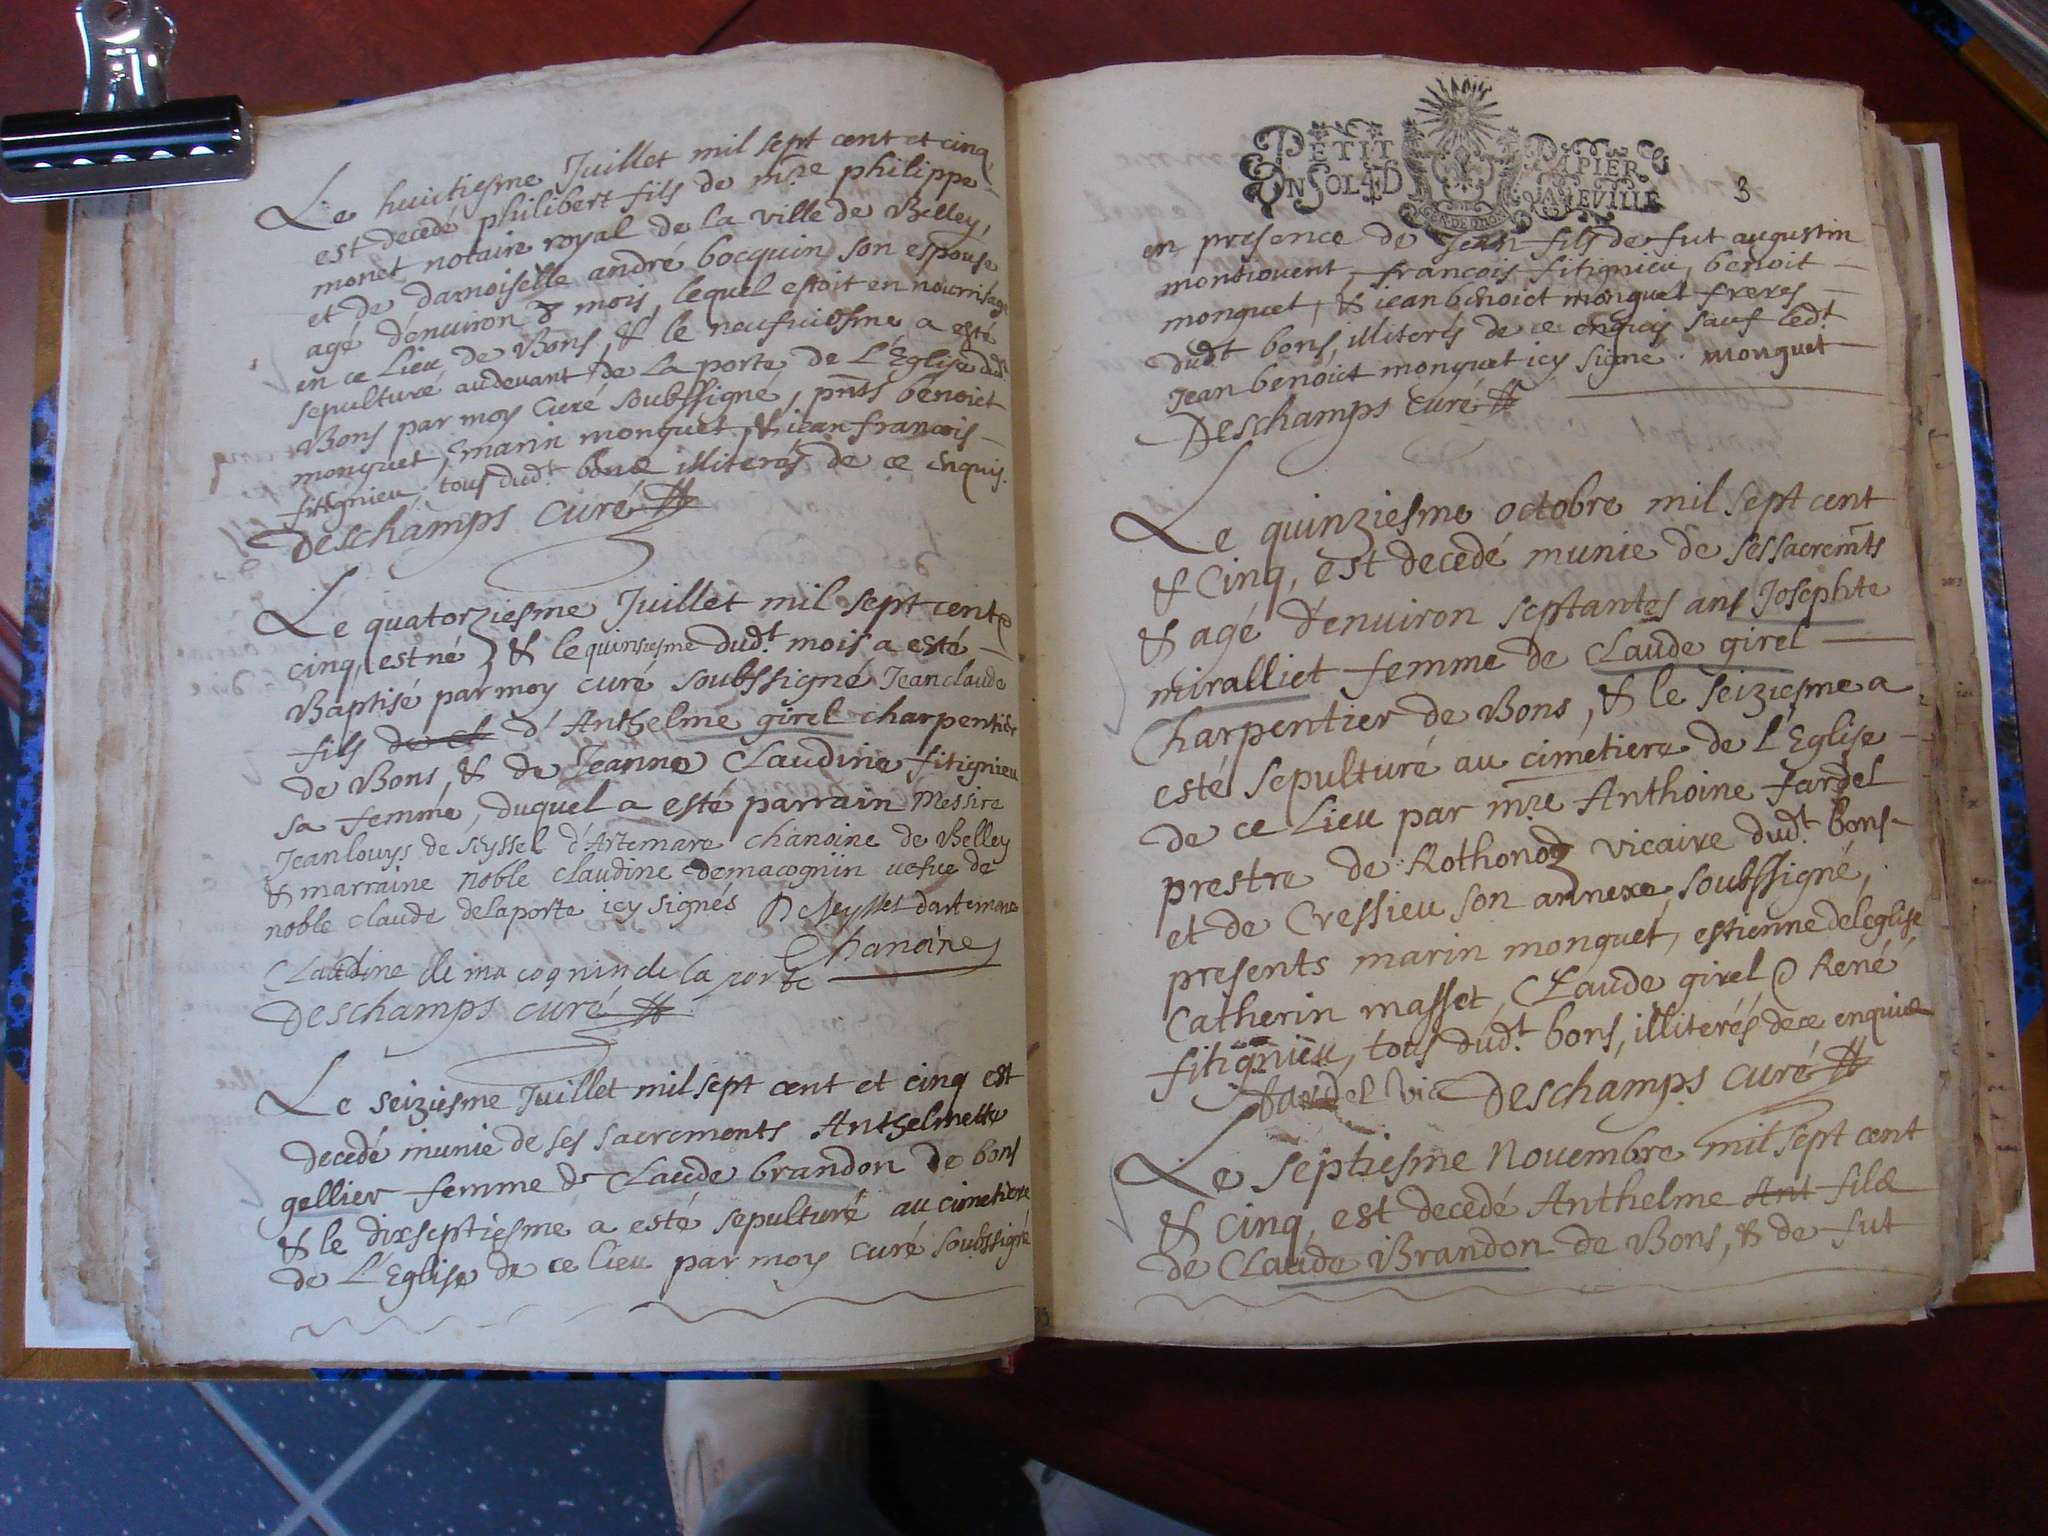 Le huitiesme Juillet mil sept cent et cinq
est decedé philibert fils de mre philippe
monet notaire royal de la ville de Belley,
et de damoiselle andré bocquin son espouse
agé d'enuiron 3 mois, lequel estoit en nourritage
en ce Lieu de Bons, & le neufuiesme a esté
sepulturé audeuant de la porte de L'Eglise dudt
Bons par moy Curé soubssigné, pnts benoict
monguet, marin monguet, & iean francois
fitignieu, tous dudt bons illiterés de ce enquis.
Deschamps curé
Le quatorziesme Juillet mil sept cent &
cinq, est né, & le quinsiesme dudt mois a esté
Baptisé par moy curé soubssigné Jean claude
fils de cl d'Anthelme girel charpentier
de Bons, & de Jeanne Claudine fitignieu
sa femme, duquel a esté parrain Messire
Jean louys de seyssel d'Artemare chanoine de Belley
& marraine noble claudine demacognin vefue de
noble claude delaporte icy signés De Seyssel dartemare
Chanoine
Claudine de macognin de la porte
Deschamps curé
Le seiziesme Juillet mil sept cent et cinq est
decedé munie de ses sacrements Anthelmette
gellier femme de Claude brandon de bons
& le dixseptiesme a esté sepulturé au cimetiere
de L'Eglise de ce lieu par moy curé soubssigné
PETIT PAPIER
UN SOL 4 D LA FEUILLE
GEN. DE DIJON
3
en presence de Jean fils de fut augustin
montouent, francois fitignieu, benoit
monguet, & iean benoict monguet freres
dudt bons, illiterés de ce enquis sauf ledt
Jean benoict monguet icy signé. monguet
Deschamps curé
Le quinziesme octobre mil sept cent
& Cinq, est decedé munie de ses sacremts
& agé d'enuiron septantes ans Josephte
miralliet femme de Claude girel
Charpentier de Bons, & le seiziesme a
esté sepulturé au cimetiere de L'Eglise
de ce Lieu par mre Anthoine fardel
prestre de Rothonod vicaire dudt Bons
et de Cressieu son annexe, soubssigné,
presents marin monguet, estienne deleglise
Catherin masset, Claude girel & René
fitignieu, tous dudt bons, illiterés de ce enquis
fardel vic Deschamps curé
Le septiesme Nouembre mil sept cent
& Cinq, est decedé Anthelme Ant fils
de Claude Brandon de Bons, & de fut